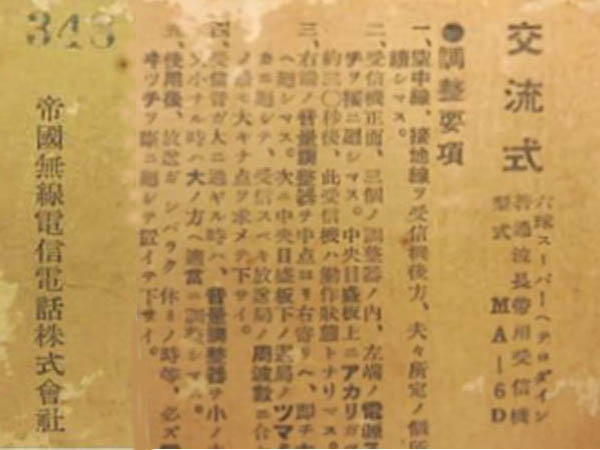 交流式
六球スーパーヘテロダイン
普通波長帯用受信機
型式 MA-6D
●調整要項
一、空中線、接地線ヲ受信機後方、夫々所定ノ個所
続シマス。
二、受信機正面、三個ノ調整器ノ内、左端ノ電源ス
チヲ右ニ廻シマス。中央目盛板上ニアカリガ
約三〇秒後、此受信機ハ動作状態トナリマス。
三、右端ノ音量調整器ヲ中点ヨリ右寄リヘ、即チ大
ヘ廻シマス。次ニ中央目盛板下ノ選局ノツマ
カニ廻シテ、受信スベキ放送局ノ周波数ニ合
ノ最モ大キナ点ヲ求メテ下サイ。
四、受信音ガ大ニ過ギル時ハ、音量調整器ヲ小ノ
又小ナル時ハ大ノ方ヘ適当ニ調整シマス。
五、使用後、放送ガシバラク休ミノ時等、必ズ
ヰッチヲ廻シテ置イテ下サイ。
343
帝國無線電信電話株式會社